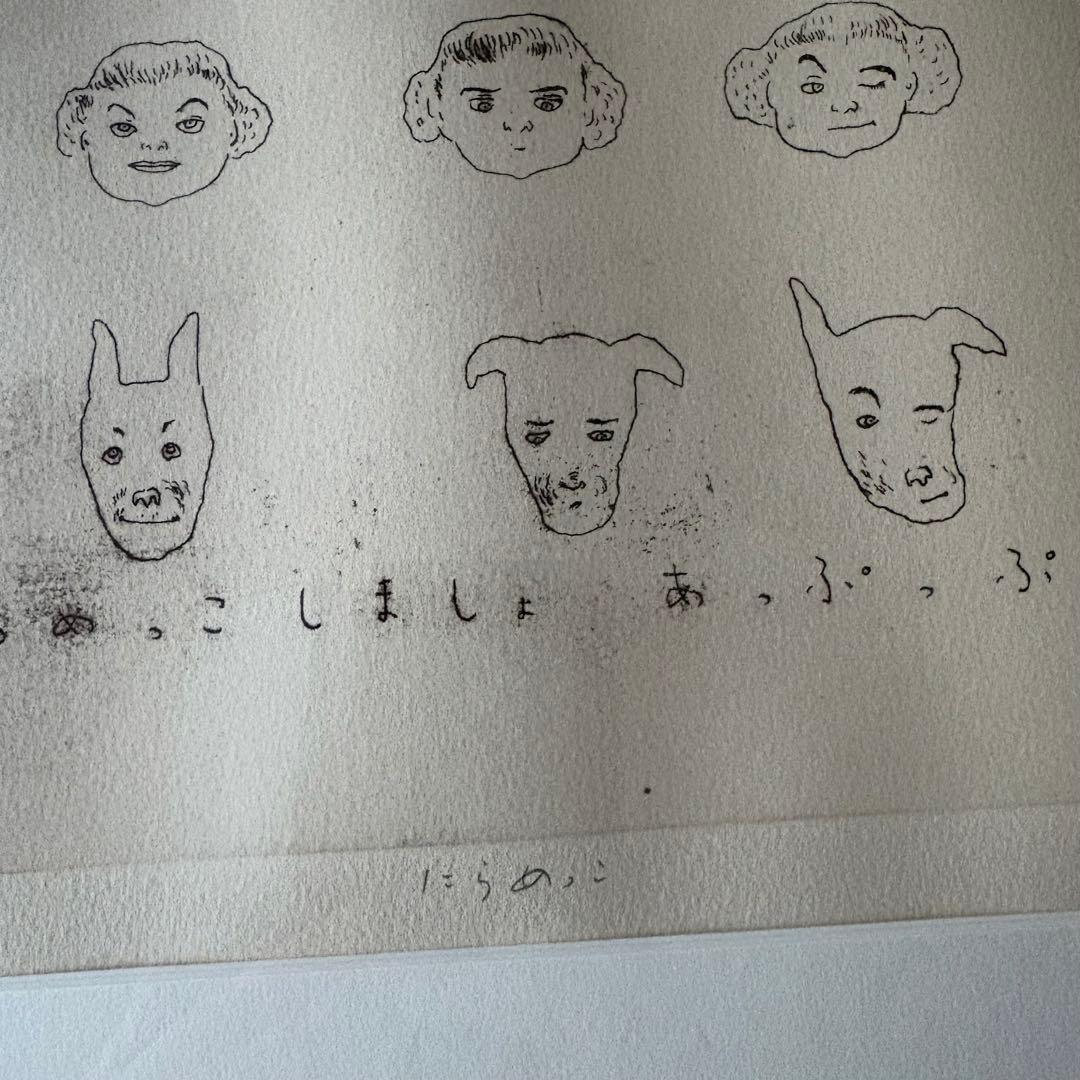 めっこしましょ あっぷっぷ
にらめっこ